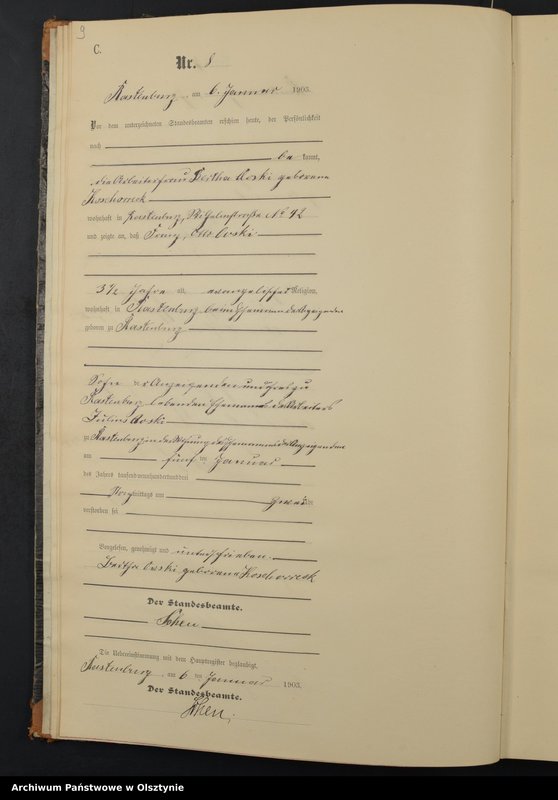 9
C.
Nr. 8
Rastenburg, am 6. Januar 1903.
Vor dem unterzeichneten Standesbeamten erschien heute, der Persönlichkeit
nach
be kannt,
die Arbeiterfrau Bertha Osski geborene
Koschorreck
wohnhaft in Rastenburg, Wilhelmstraße No 42
und zeigte an, daß Franz, Otto Osski
3 1/2 Jahre alt, evangelischer Religion,
wohnhaft in Rastenburg beim Ehemann der Anzeigenden
geboren zu Rastenburg
Sohn der Anzeigenden und ihres zu
Rastenburg lebenden Ehemanns des Arbeiters
Julius Osski
zu Rastenburg in der Wohnung des Ehemannes der Anzeigenden
am fünf ten Januar
des Jahres tausendneunhundertunddrei
Vormittags um zwei Uhr
verstorben sei
Vorgelesen, genehmigt und unterschrieben.
Bertha Osski geborene Koschorreck
Der Standesbeamte.
Die Uebereinstimmung mit dem Hauptregister beglaubigt.
Rastenburg, am 6 ten Januar 1903.
Der Standesbeamte.
Archiwum Państwowe w Olsztynie